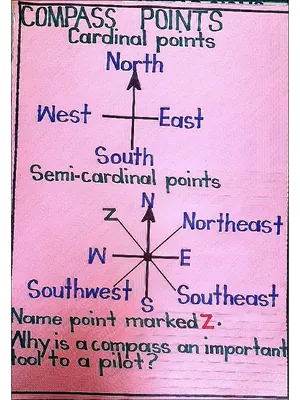 COMPASS POINTS
Cardinal points
North
West East
South
Semi-cardinal points
N
Z Northeast
W E
Southwest Southeast
S
Name point marked Z.
Why is a compass an important
tool to a pilot?